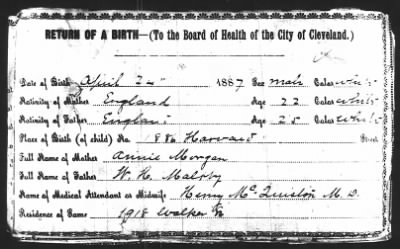 RETURN OF A BIRTH—(To the Board of Health of the City of Cleveland.)
Date of Birth April 1887 Sex male Color white
Nativity of Mother England Age 22 Color white
Nativity of Father England Age 25 Color white
Place of Birth (of child) No. 1886 Harvard Street
Full Name of Mother Annie Morgan
Full Name of Father W. H. Malrby
Name of Medical Attendant or Midwife Henry McQuiston M.D.
Residence of Same 1918 Walker